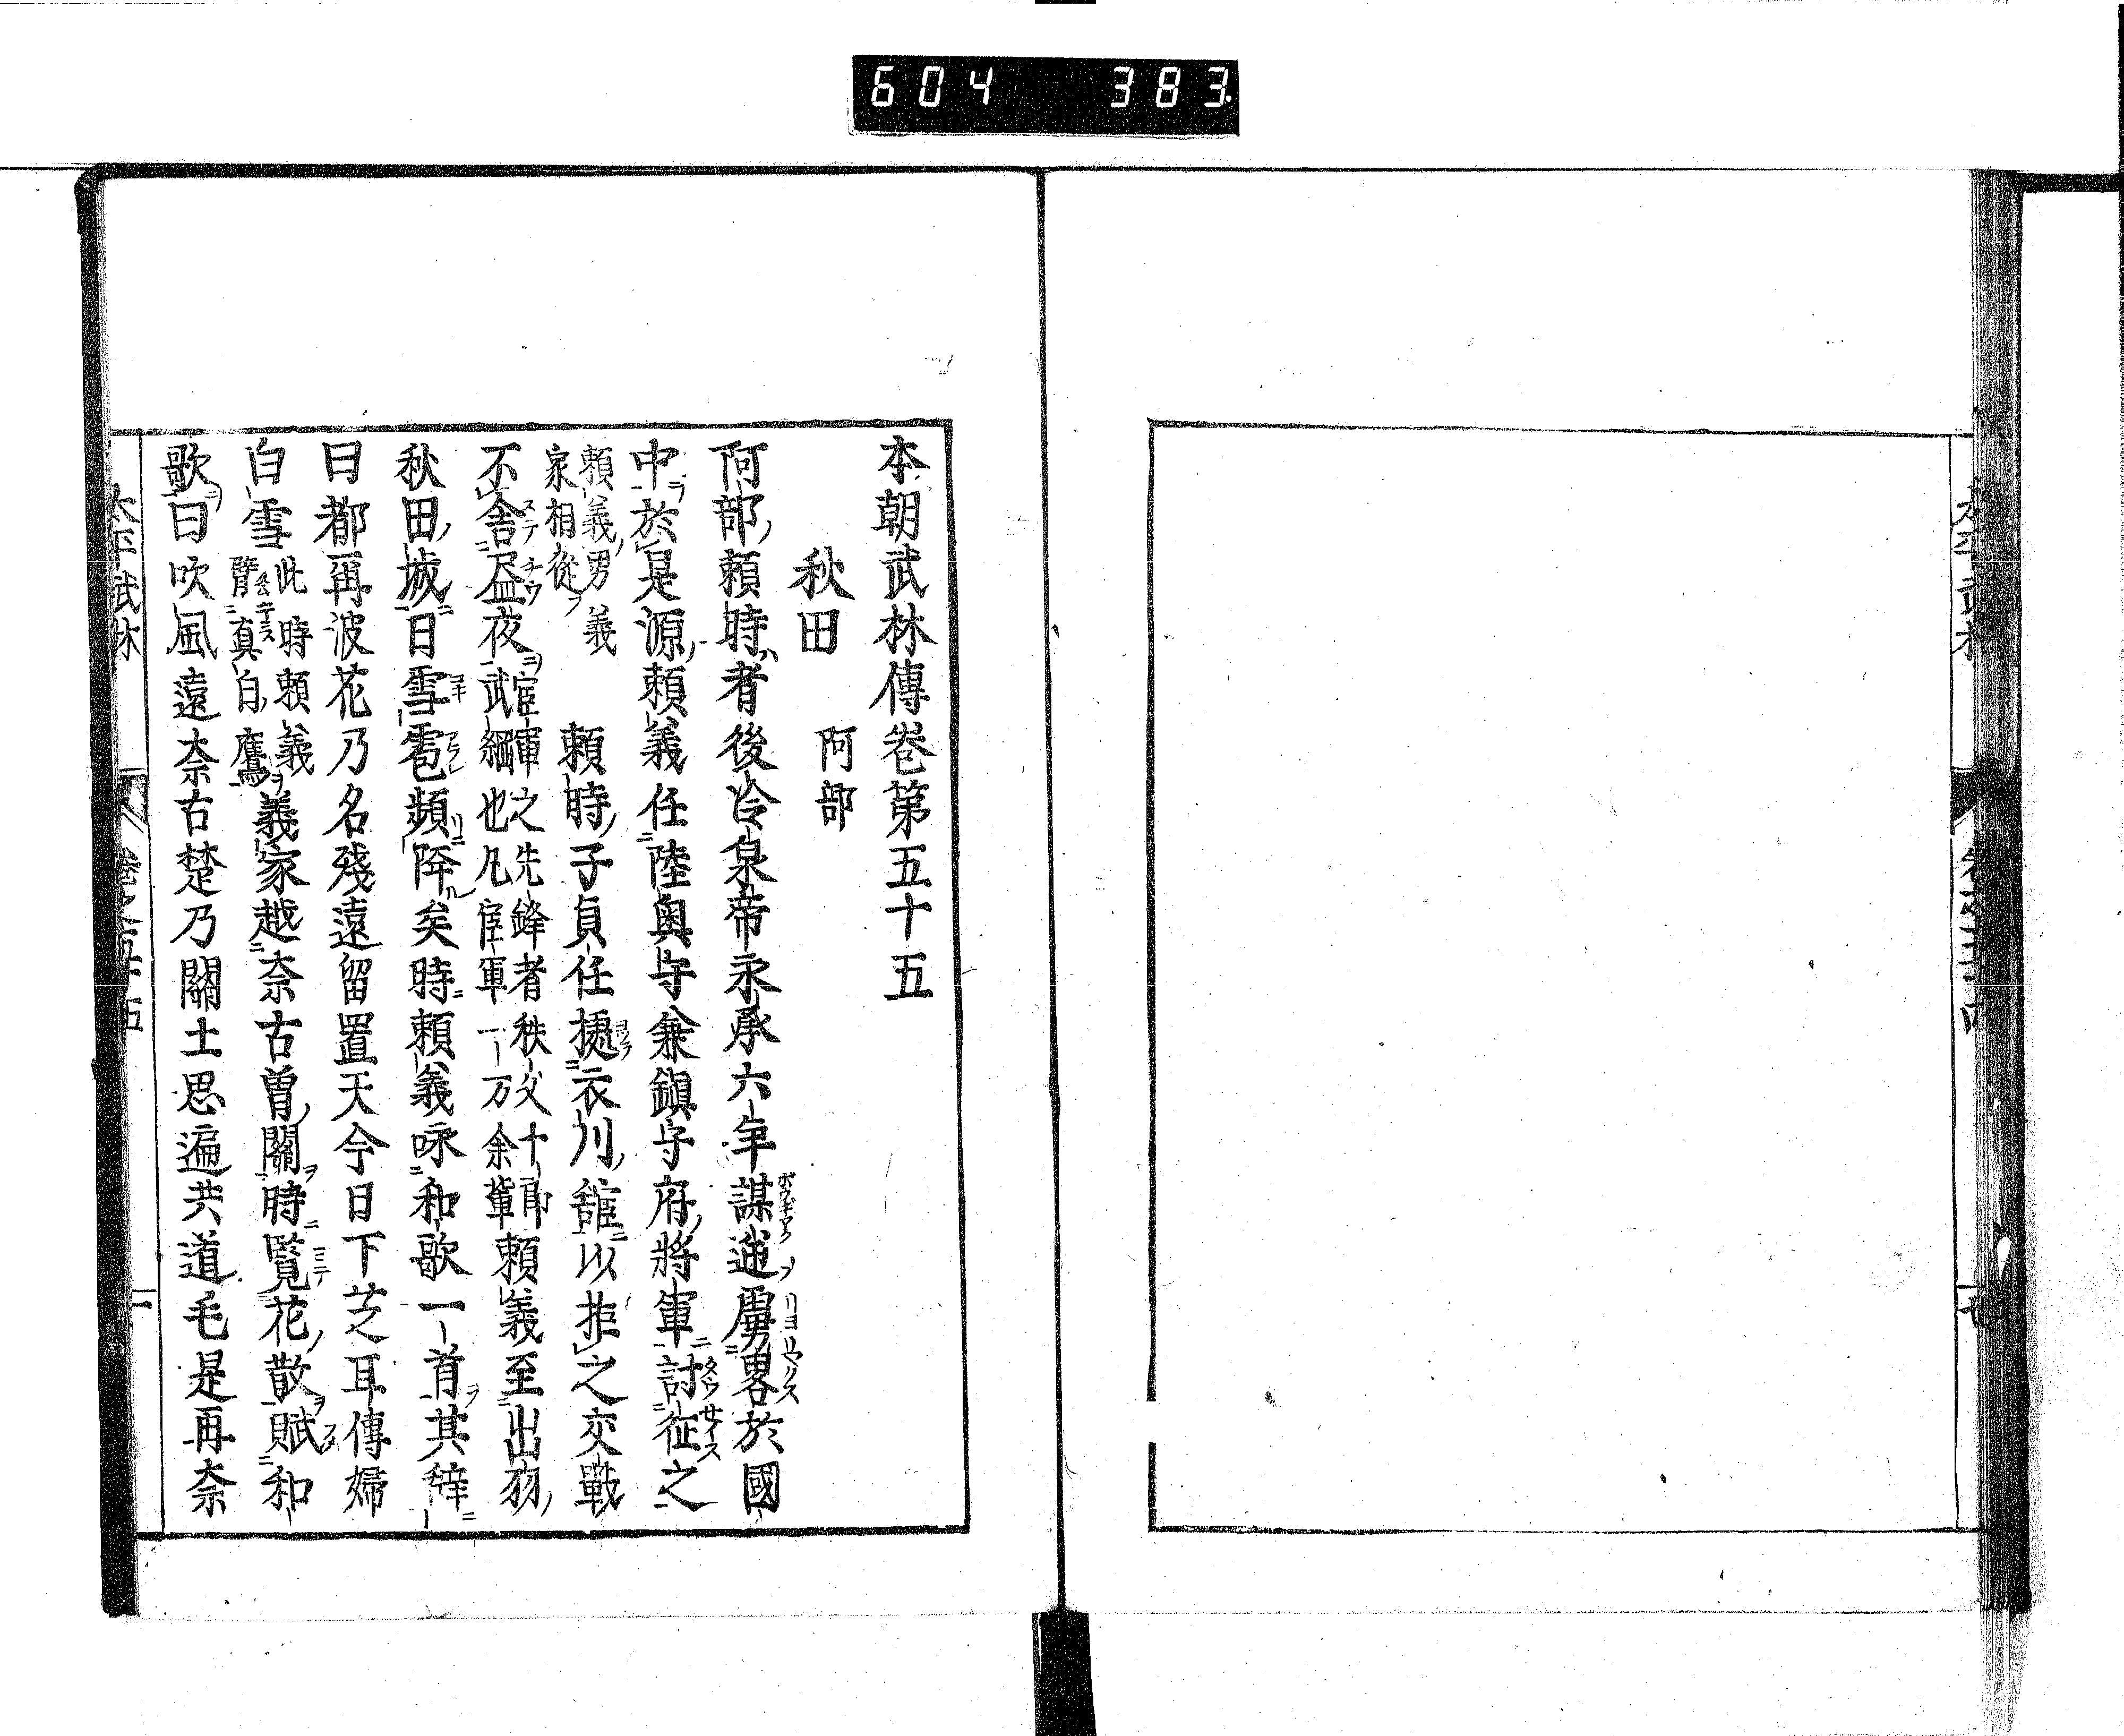 604 383
本朝武林傳卷第五十五
秋田 阿部
阿部頼時者後冷泉帝永承六年謀逆虜畧於國
中於是源頼義任陸奥守兼鎮守府將軍討征之
頼義男義家相從 頼時子貞任據衣川舘以拒之交戰
不舎昼夜 官軍之先鋒者秩父十郎武綱也凡官軍一万余輩 頼義至出羽
秋田城日雪雹頻降矣時頼義咏和歌一首其辭
曰都再波花乃名殘遠留置天今日下芝耳傳婦
白雪 此時頼義臂真白鷹 義家越奈古曽關時覧花散賦和
歌曰吹風遠奈古楚乃關土思遍共道毛是再奈
太平武林 卷之五十五 一